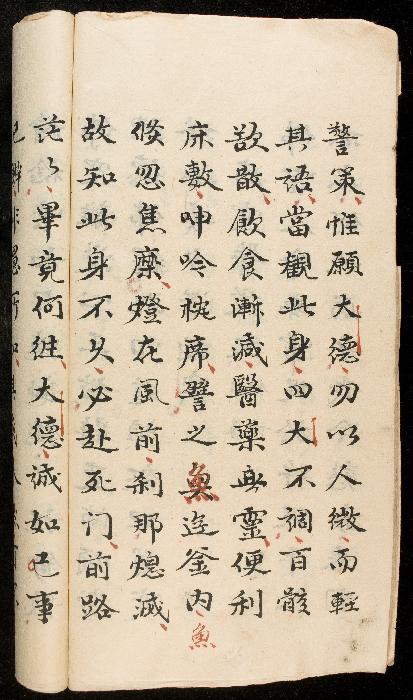 警策惟願大德勿以人微而輕
其語當觀此身四大不調百骸
欲散飲食漸減醫藥無靈便利
床敷呻吟枕席譬之魚遊釜内
魚
倐忽焦糜燈在風前刹那熄滅
故知此身不久必赴死门前路
茫〻畢竟何徃大德誠如己事